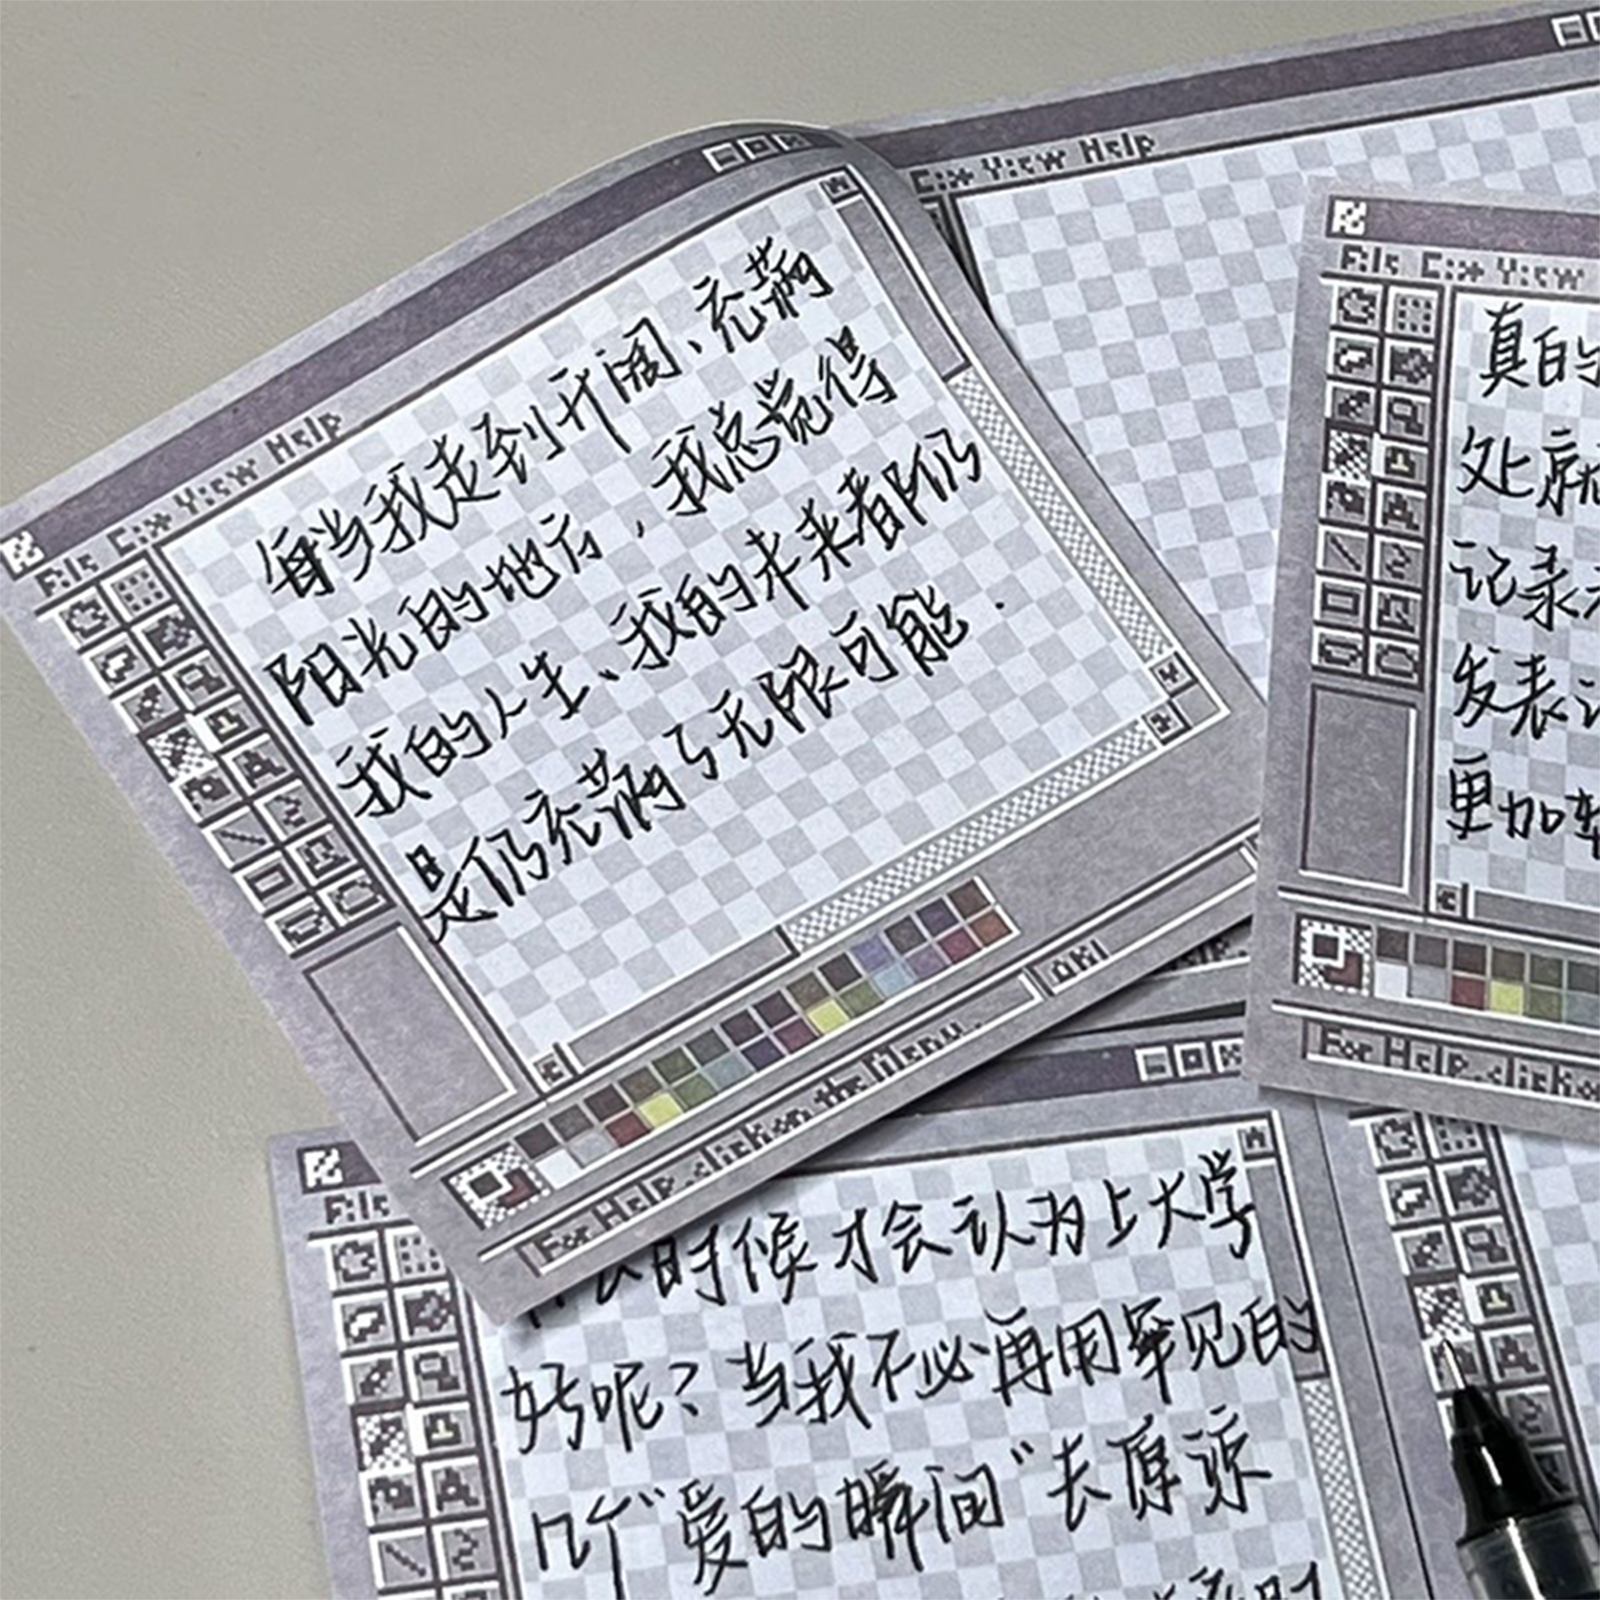 File Edit View Help
每当我走到开阔、充满
阳光的地方，我总觉得
我的人生、我的未来都仍
是仍充满了无限可能．
For Help, click on the Menu..
OK!
Edit View Help
File Edit View
真的
处就
记录
发表
更加
For Help, click o
File
时候才会认为上大学
好呢？当我不必再用罕见的
几个“爱的瞬间”去原谅